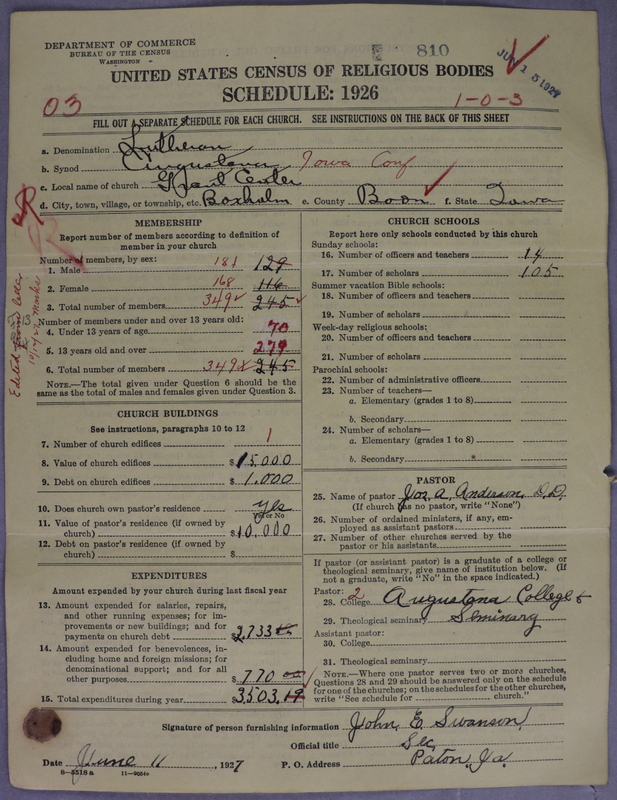 DEPARTMENT OF COMMERCE
BUREAU OF THE CENSUS
WASHINGTON
E 810
JUN 15 1927
UNITED STATES CENSUS OF RELIGIOUS BODIES
SCHEDULE: 1926
03
1-0-3
FILL OUT A SEPARATE SCHEDULE FOR EACH CHURCH. SEE INSTRUCTIONS ON THE BACK OF THIS SHEET
a. Denomination Lutheran
b. Synod Augustana Iowa Conf
c. Local name of church Grant Center
d. City, town, village, or township, etc. Boxholm e. County Boon f. State Iowa
R
Edited from letter
10/17/27 Marks
MEMBERSHIP
Report number of members according to definition of
member in your church
Number of members, by sex:
1. Male 181 129
2. Female 168 116
3. Total number of members 349 245
Number of members under and over 13 years old:
4. Under 13 years of age 70
5. 13 years old and over 279
6. Total number of members 349 245
NOTE.—The total given under Question 6 should be the
same as the total of males and females given under Question 3.
CHURCH BUILDINGS
See instructions, paragraphs 10 to 12
7. Number of church edifices 1
8. Value of church edifices $15,000
9. Debt on church edifices $1,000
10. Does church own pastor's residence yes
Yes or No
11. Value of pastor's residence (if owned by
church) $10,000
12. Debt on pastor's residence (if owned by
church) $
EXPENDITURES
Amount expended by your church during last fiscal year
13. Amount expended for salaries, repairs,
and other running expenses; for im-
provements or new buildings; and for
payments on church debt $2,733
14. Amount expended for benevolences, in-
cluding home and foreign missions; for
denominational support; and for all
other purposes $770
15. Total expenditures during year $3,503.19
CHURCH SCHOOLS
Report here only schools conducted by this church
Sunday schools:
16. Number of officers and teachers 14
17. Number of scholars 105
Summer vacation Bible schools:
18. Number of officers and teachers
19. Number of scholars
Week-day religious schools:
20. Number of officers and teachers
21. Number of scholars
Parochial schools:
22. Number of administrative officers
23. Number of teachers—
a. Elementary (grades 1 to 8)
b. Secondary
24. Number of scholars—
a. Elementary (grades 1 to 8)
b. Secondary
PASTOR
25. Name of pastor Jos. A. Anderson, D.D.
(If church has no pastor, write "None")
26. Number of ordained ministers, if any, em-
ployed as assistant pastors
27. Number of other churches served by the
pastor or his assistants
If pastor (or assistant pastor) is a graduate of a college or
theological seminary, give name of institution below. (If
not a graduate, write "No" in the space indicated.)
Pastor: 2
28. College Augustana College &
29. Theological seminary Seminary
Assistant pastor:
30. College
31. Theological seminary
NOTE.—Where one pastor serves two or more churches,
Questions 28 and 29 should be answered only on the schedule
for one of the churches; on the schedules for the other churches,
write "See schedule for church."
Signature of person furnishing information John E. Swanson
Official title Sec.
Date June 11, 1927 P. O. Address Paton, Ia.
8-5518 a